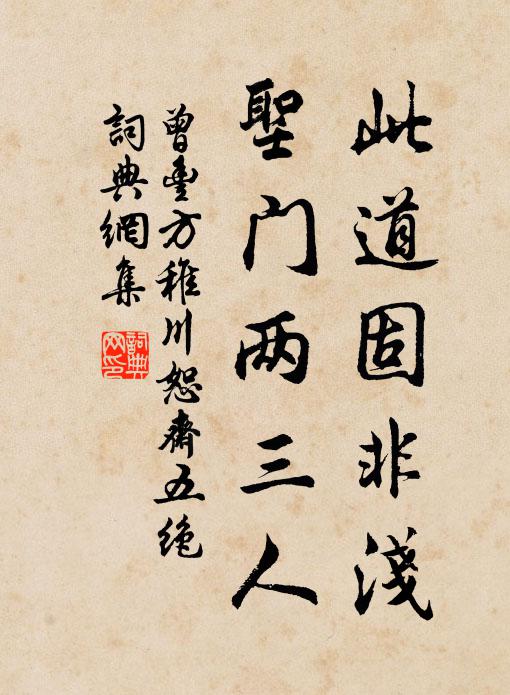 此道固非淺
聖门两三人
曾豊方稚川恕齋五绝
詞典網集
詞典网印